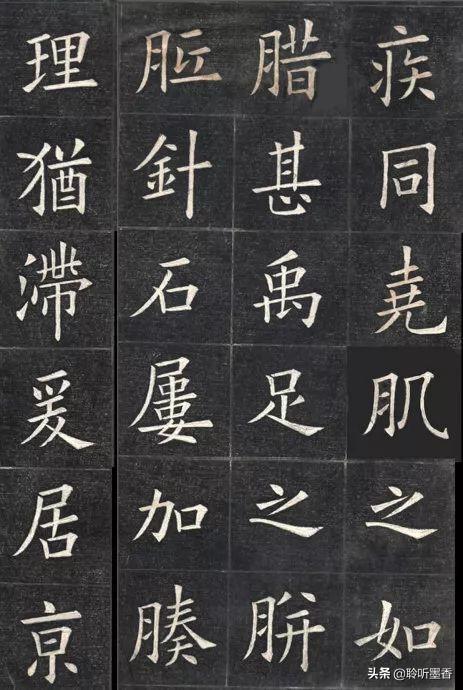 疾同堯肌之如
腊甚禹足之胼
胝針石屢加腠
理猶滯爰居亰
头条 @聆听墨香